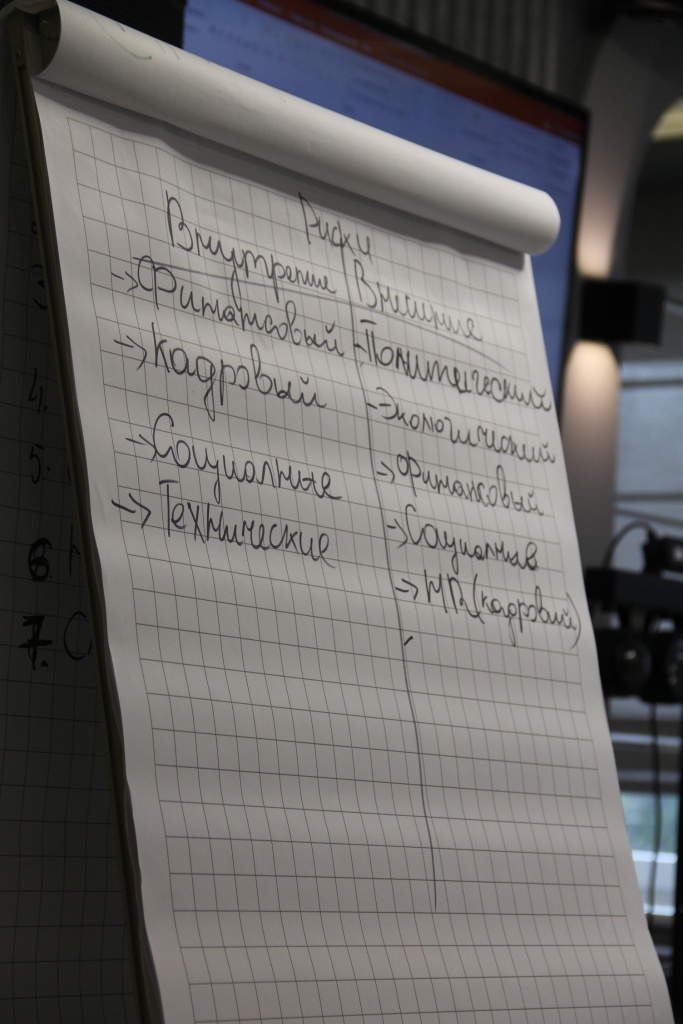 Риски
Внутрение
→ Финансовый
→ кадровый
→ Социальные
→ Технические
Внешние
- Политический
- Экономический
→ Финансовый
→ Социальные
→ HR (кадровый)
4.
5.
6
7. С